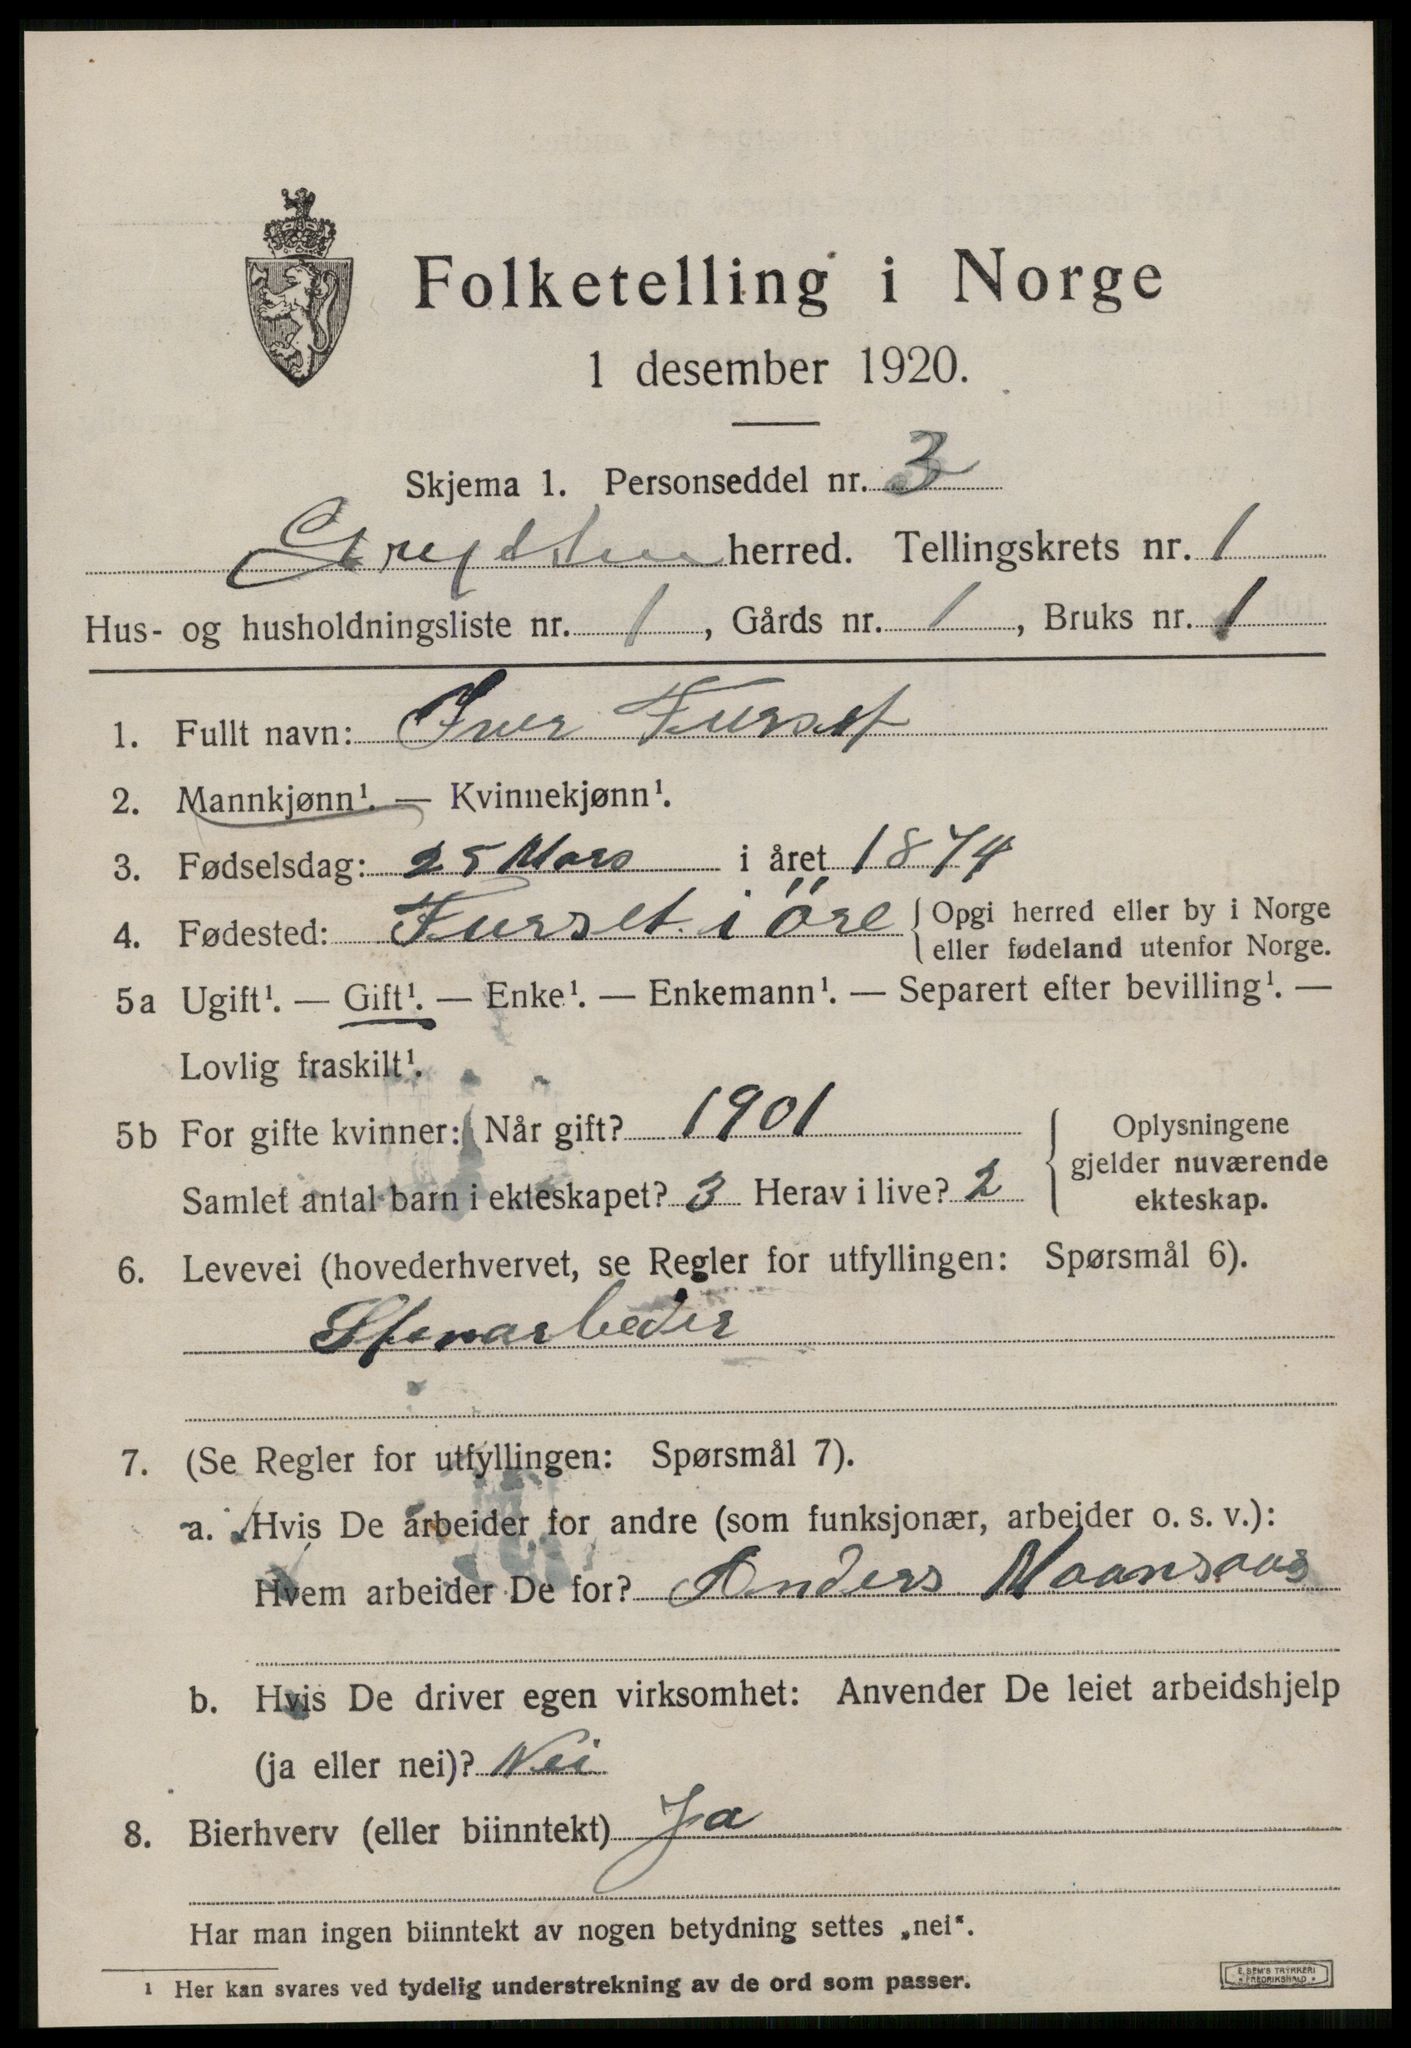 Folketelling i Norge
1 desember 1920.
Skjema 1. Personseddel nr. 3
Grytten herred. Tellingskrets nr. 1
Hus- og husholdningsliste nr. 1, Gårds nr. 1, Bruks nr. 1
1. Fullt navn: Iver Furset
2. Mannkjønn¹. — Kvinnekjønn¹.
3. Fødselsdag: 25 Mars i året 1874
4. Fødested: Furset i Öre { Opgi herred eller by i Norge
eller fødeland utenfor Norge.
5a Ugift¹. — Gift¹. — Enke¹. — Enkemann¹. — Separert efter bevilling¹. —
Lovlig fraskilt¹.
5b For gifte kvinner: Når gift? 1901
Samlet antal barn i ekteskapet? 3 Herav i live? 2
Oplysningene
gjelder nuværende
ekteskap.
6. Levevei (hovederhvervet, se Regler for utfyllingen: Spørsmål 6).
Stenarbeder
7. (Se Regler for utfyllingen: Spørsmål 7).
a. Hvis De arbeider for andre (som funksjonær, arbeider o. s. v.):
Hvem arbeider De for? Anders
b. Hvis De driver egen virksomhet: Anvender De leiet arbeidshjelp
(ja eller nei)? Nei
8. Bierhverv (eller biinntekt) Ja
Har man ingen biinntekt av nogen betydning settes „nei“.
¹ Her kan svares ved tydelig understrekning av de ord som passer.
E. SEM'S TRYKKERI
FREDRIKSHALD